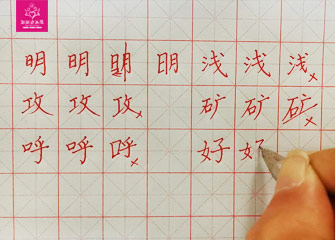 明明明明浅浅浅
攻攻攻矿矿矿
呼呼呼好好